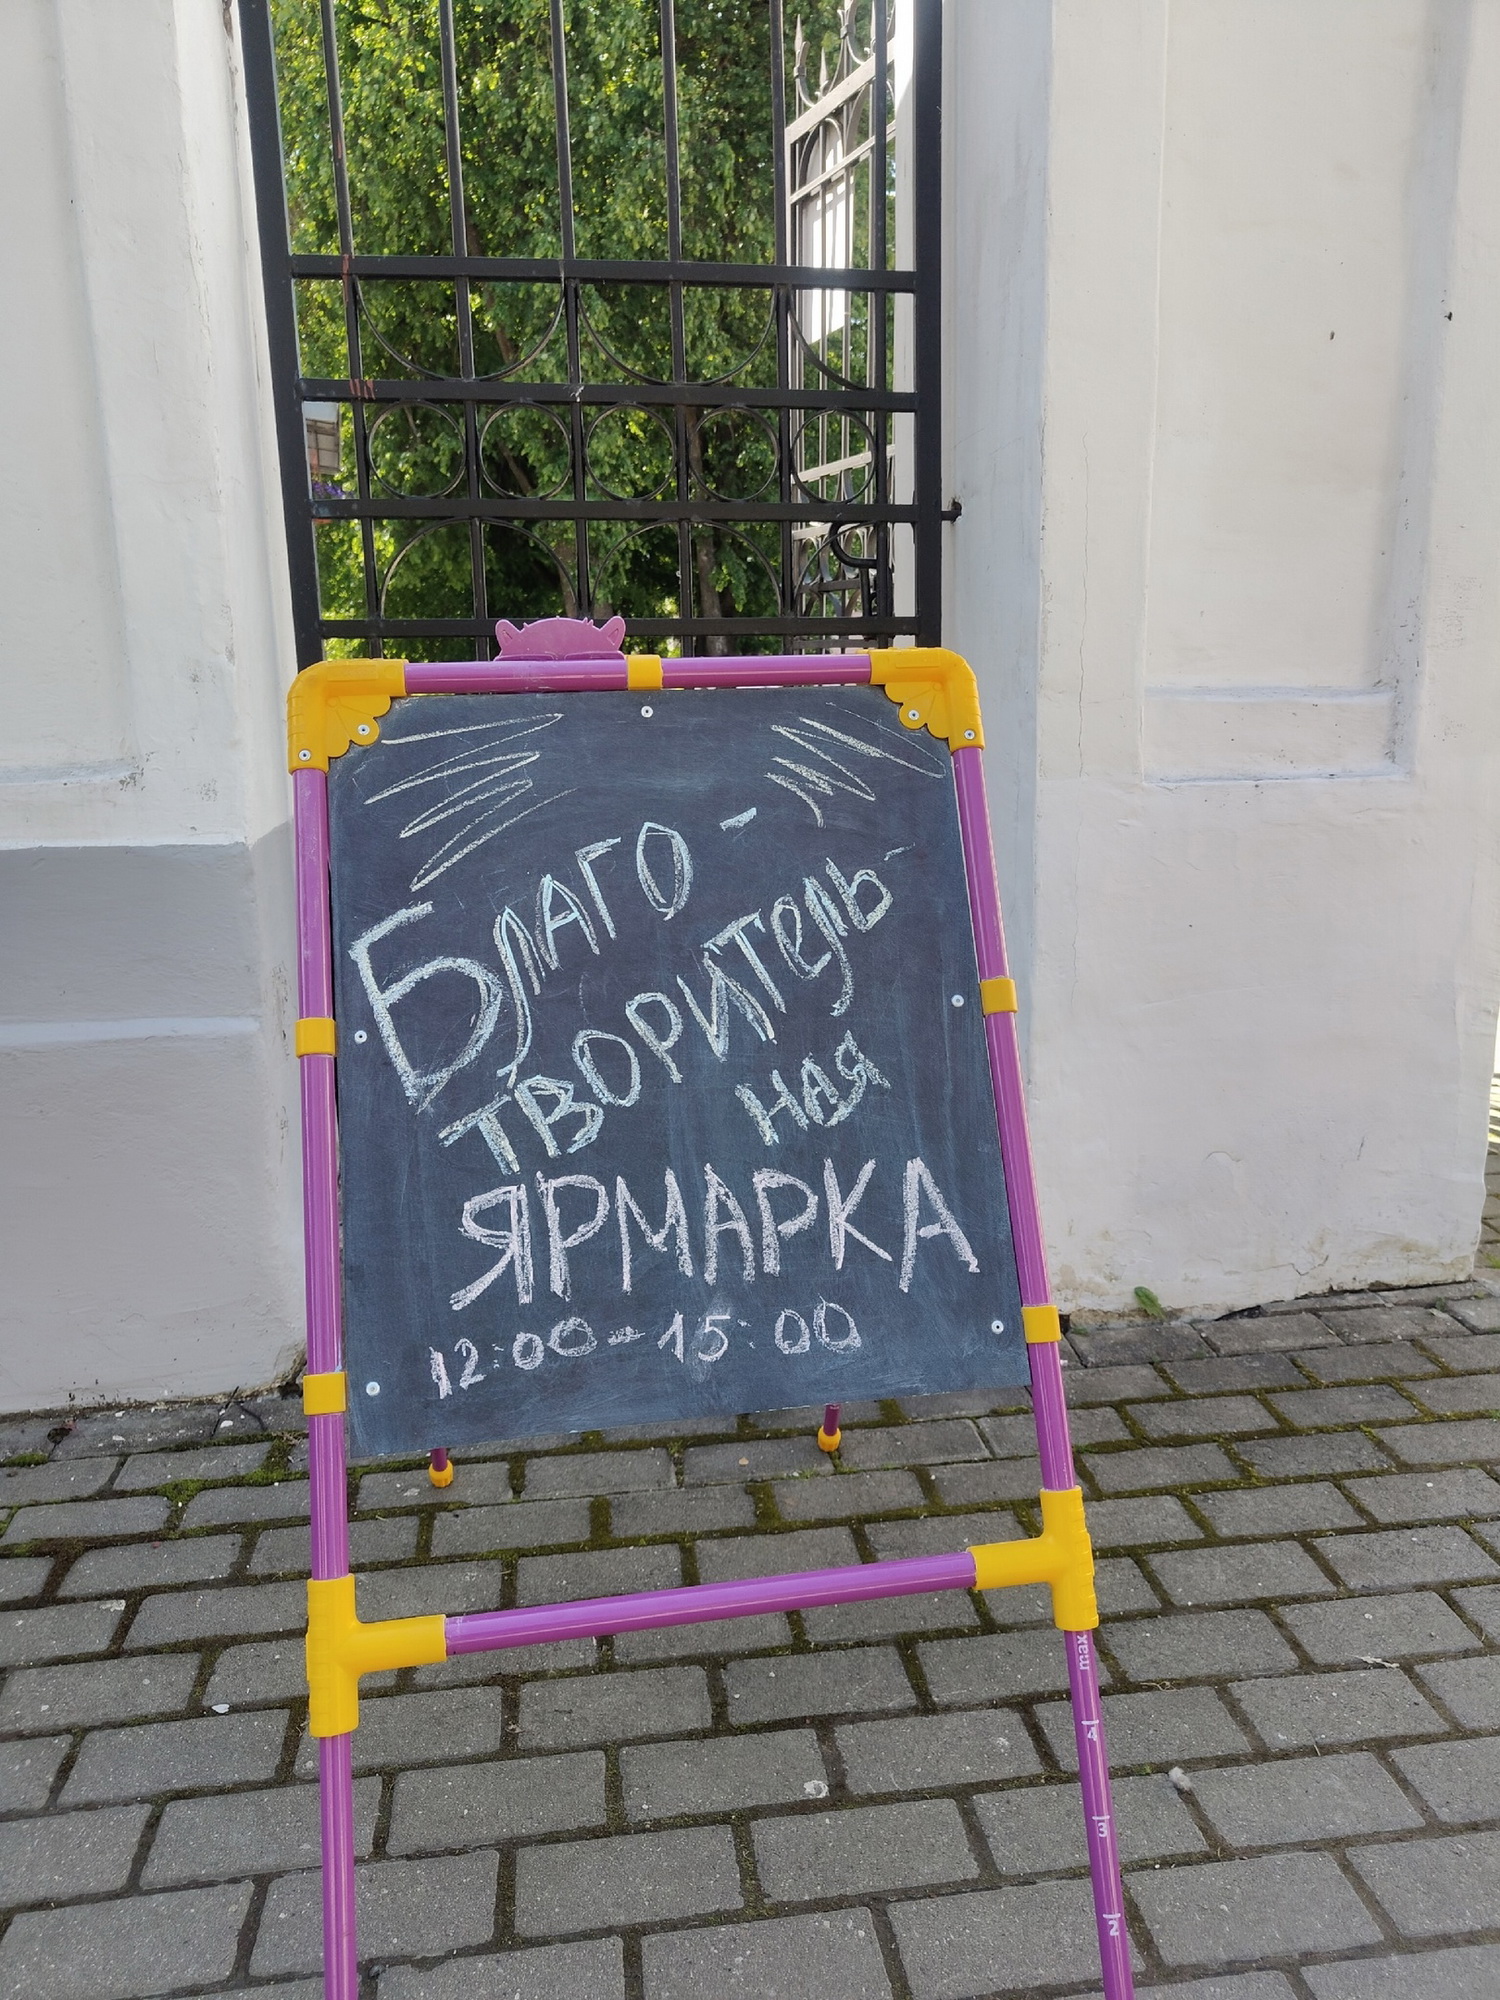 Благо-
творитель-
ная
ЯРМАРКА
12:00-15:00
max
4
3
2